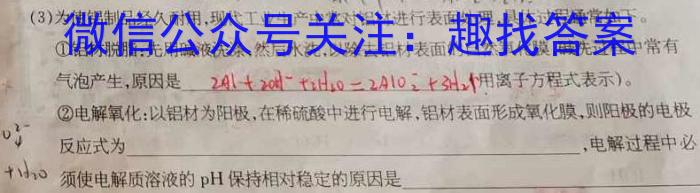 (3)为使铝制品经久耐用,现代工业
微信公众号关注：趣找答案
①铝材脱脂:先用碱液洗涤,然后水洗,以除去铝材表面 中常有
气泡产生,原因是 2Al+2OH⁻+2H₂O=2AlO₂⁻+3H₂↑ (用离子方程式表示)。
②电解氧化:以铝材为阳极,在稀硫酸中进行电解,铝材表面形成氧化膜,则阳极的电极
反应式为 ,电解过程中必
须使电解质溶液的 pH 保持相对稳定的原因是